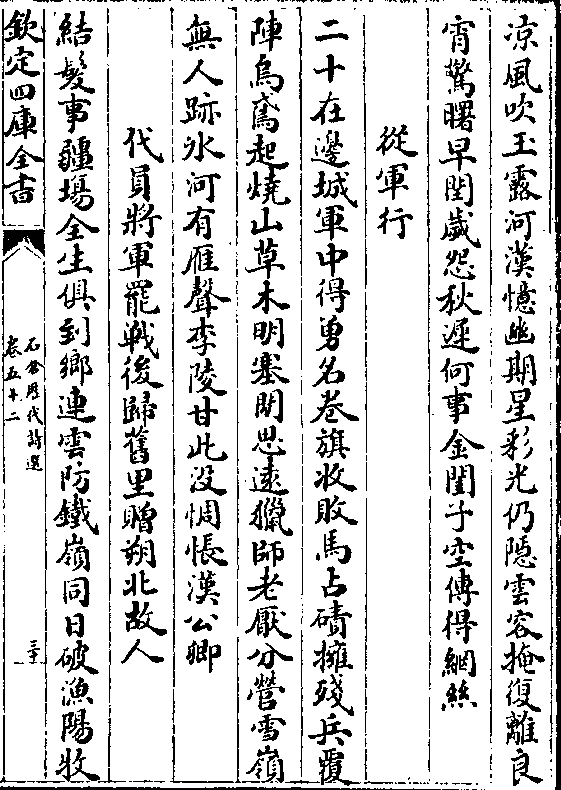 凉風吹玉露河漢憶幽期星彩光仍隱雲容掩復離良
宵驚曙早閏歲怨秋遲何事金閨子空傳得網絲
從軍行
二十在邊城軍中得勇名卷旗收敗馬占磧擁殘兵覆
陣烏鳶起燒山草木明塞閒思遠獵師老厭分營雪嶺
無人跡氷河有雁聲李陵甘此没惆悵漢公卿
代員將軍罷戰後歸舊里贈朔北故人
結髮事疆場全生俱到鄉連雲防鐵嶺同日破漁陽牧
欽定四庫全書
石倉歷代詩選
卷五十二
三十